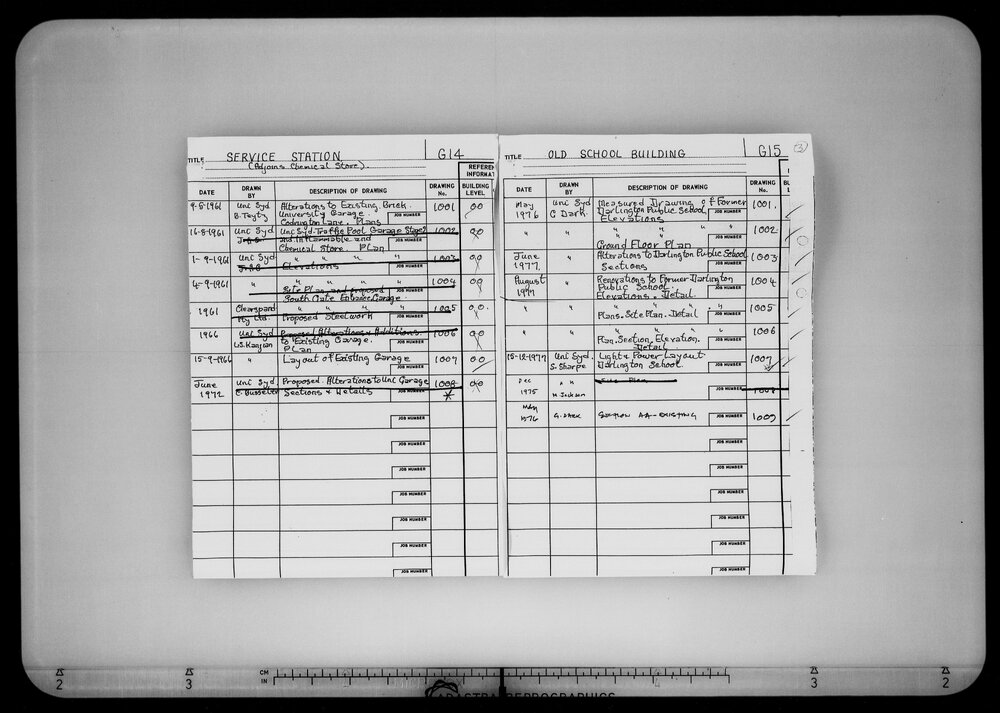 TITLE SERVICE STATION G14
(Adjoins Chemical Store).
REFEREN
INFORMAT
DATE DRAWN BY DESCRIPTION OF DRAWING DRAWING No. BUILDING LEVEL
9-8-1961 Uni Syd Alterations to Existing Brick 1001 00
B. University Garage. JOB NUMBER
Codrington Lane. Plans
16-8-1961 Uni Syd Uni Syd-Traffic Pool Garage Stage 2 1002 00
and Inflammable and JOB NUMBER
Chemical Store Plan
1-9-1961 Uni Syd " " " " 1003 00
Elevations JOB NUMBER
4-9-1961 " " " " " 1004 00
Site Plan and proposed JOB NUMBER
South Gate Entrance Garage
1961 Clearspan " " " " 1005 00
Pty Ltd. Proposed Steelwork JOB NUMBER
1966 Uni Syd Proposed Alterations & Additions 1006 00
to Existing Garage. JOB NUMBER
PLan
15-9-1966 " Layout of Existing Garage 1007 00
JOB NUMBER
June Uni Syd Proposed Alterations to Uni Garage 1008 00
1972 Sections & Details JOB NUMBER *
JOB NUMBER
JOB NUMBER
JOB NUMBER
JOB NUMBER
JOB NUMBER
JOB NUMBER
JOB NUMBER
TITLE OLD SCHOOL BUILDING G15 3
DATE DRAWN BY DESCRIPTION OF DRAWING DRAWING No. BU L
May Uni Syd Measured Drawing of Former 1001.
1976 C Dark. Darlington Public School JOB NUMBER
Elevations
" " " " " " 1002
JOB NUMBER
Ground Floor Plan
June " Alterations to Darlington Public School 1003
1977. Sections JOB NUMBER
August " Renovations to Former Darlington 1004
1977 Public School. JOB NUMBER
Elevations. Detail
" " " " " " 1005
Plans. Site Plan. Detail JOB NUMBER
" " " " " 1006
Plan, Section, Elevation. JOB NUMBER
Detail
15-12-1977 Uni Syd. Light & Power Layout 1007
S. Sharpe Darlington School. JOB NUMBER
Dec " " Site Plan 1008
1975 M. Jackson JOB NUMBER
May
1976 G. DARK SECTION AA - EXISTING 1009
JOB NUMBER
JOB NUMBER
JOB NUMBER
JOB NUMBER
JOB NUMBER
JOB NUMBER
JOB NUMBER
CM
IN
2 3 3 2
REPROGRAPHICS